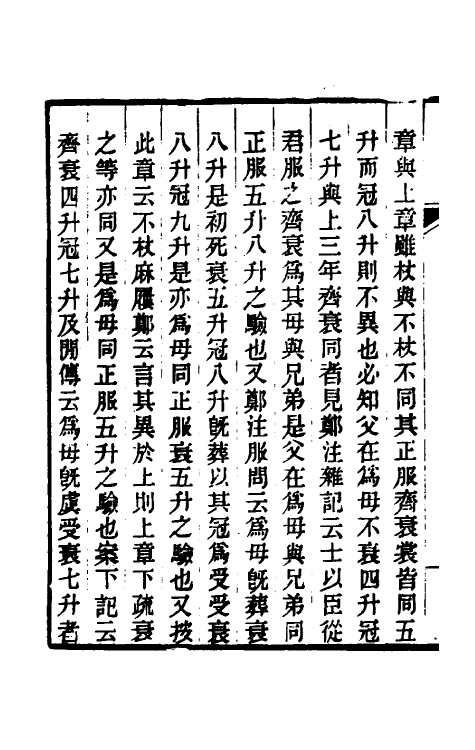 章與上章雖杖與不杖不同其正服齊衰裳皆同五
升而冠八升則不異也必知父在爲母不衰四升冠
七升與上三年齊衰同者見鄭注雜記云士以臣從
君服之齊衰爲其母與兄弟是父在爲母與兄弟同
正服五升八升之驗也又鄭注服問云爲母旣葬衰
八升是初死衰五升冠八升旣葬以其冠爲受受衰
八升冠九升是亦爲母同正服衰五升之驗也又按
此章云不杖麻屨鄭云言其異於上則上章下疏衰
之等亦同又是爲母同正服五升之驗也案下記云
齊衰四升冠七升及閒傳云爲母旣虞受衰七升者